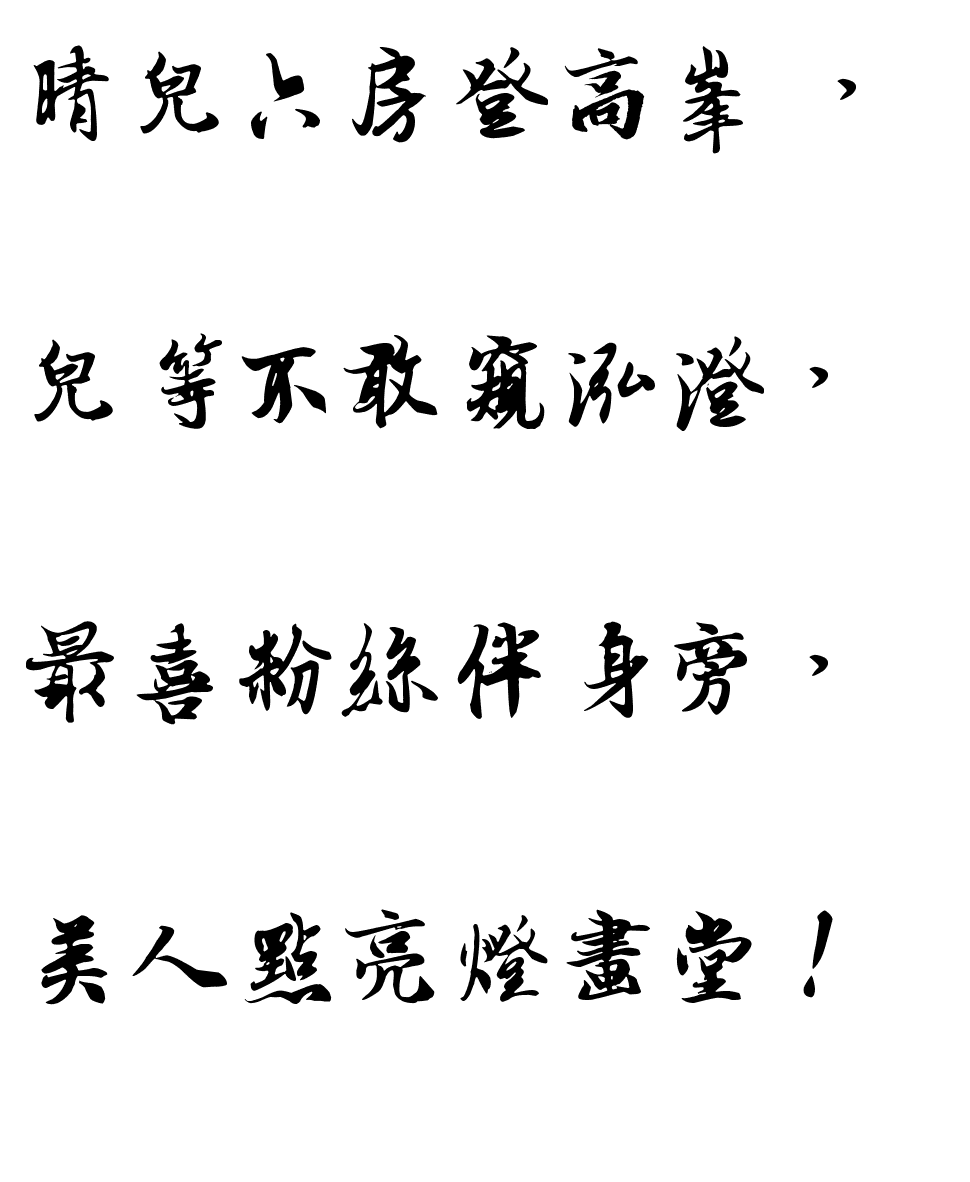 晴兒六房登高峯，
兒等不敢窺泓澄，
最喜粉絲伴身旁，
美人點亮燈畫堂！